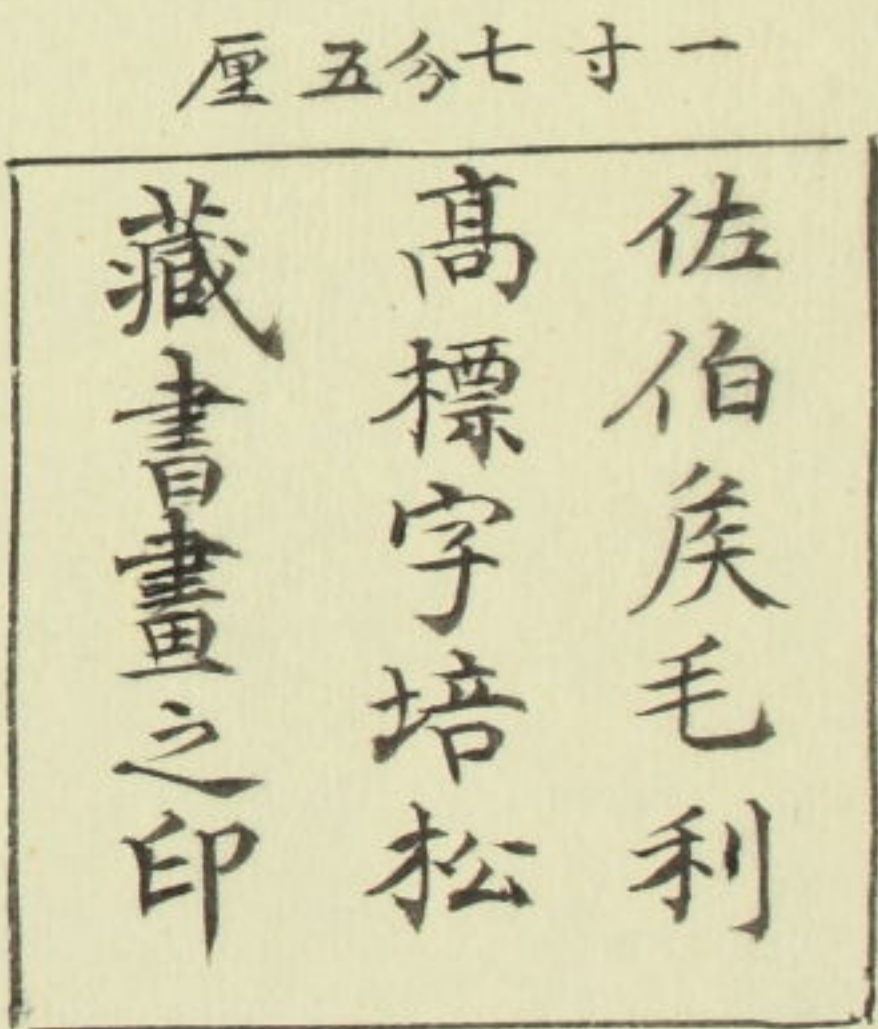 一寸七分五厘
佐伯矦毛利
髙標字培松
藏書畫之印